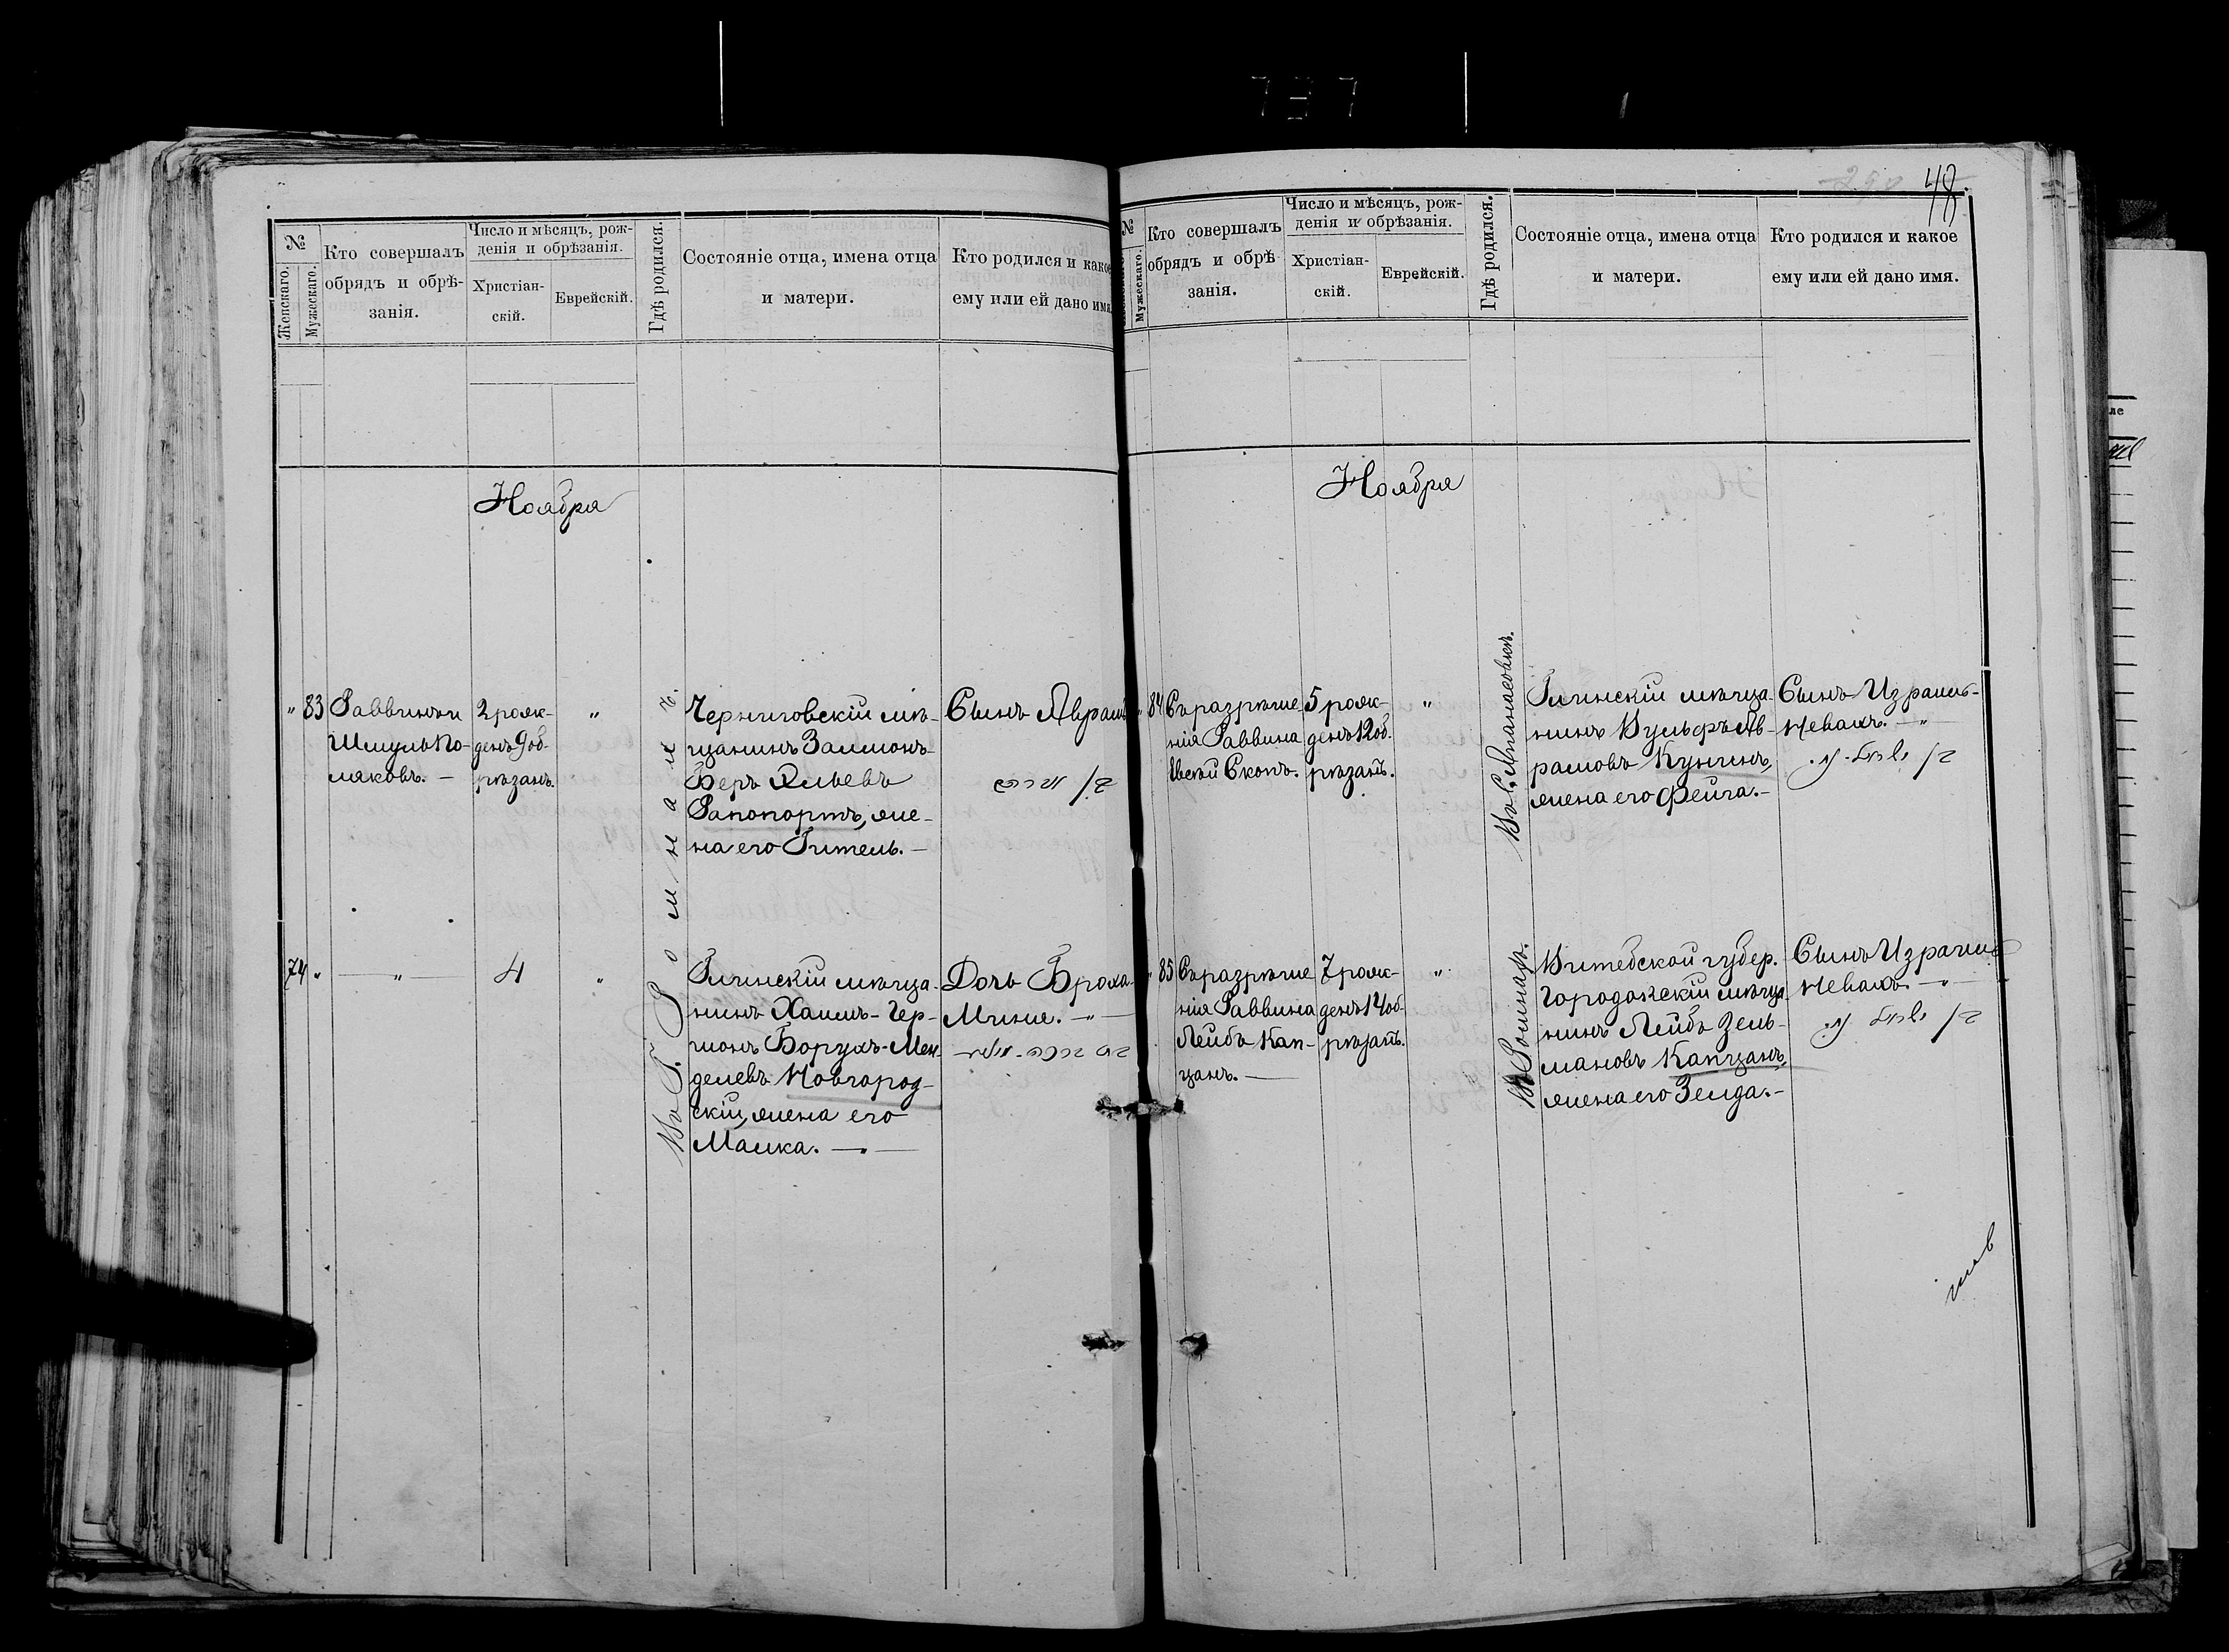 48
№
Женскаго.
Мужескаго.
Кто совершалъ
обрядъ и обрѣ-
занія.
Число и мѣсяцъ, рож-
денія и обрѣзанія.
Христіан-
скій.
Еврейскій.
Гдѣ родился.
Состояніе отца, имена отца
и матери.
Кто родился и какое
ему или ей дано имя.
Ноября
" 83
Раввинъ и
Шмуль По-
ляковъ. —
2 рожд-
денъ 9 об-
рѣзанъ.
"
Въ Г. Ромнахъ.
Черниговскій мѣ-
щанинъ Залмонъ-
Беръ Эльевъ
Рапопортъ, же-
на его Гитель. —
Сынъ Абрамъ
74 "
— " —
4
"
Роменскій мѣща-
нинъ Хаимъ-Гер-
шонъ Борухъ-Мен-
делевъ Новгород-
скій, жена его
Малка. —
Дочь Броха-
Мине. — " —
№
Мужескаго.
Кто совершалъ
обрядъ и обрѣ
занія.
Число и мѣсяцъ, рож-
денія и обрѣзанія.
Христіан-
скій.
Еврейскій.
Гдѣ родился.
Состояніе отца, имена отца
и матери.
Кто родился и какое
ему или ей дано имя.
Ноября
" 84
Съ разрѣше
нія Раввина
5 рож-
денъ 12 об.
рѣзанъ.
"
Въ С. Апанасовкѣ.
мѣща-
нинъ Вульфъ Аб-
рамовъ Кунинъ,
жена его Фейга. —
Сынъ Израиль-
Невахъ. — "
" 85
Съ разрѣше
нія Раввина
Лейбъ Кап-
цанъ. —
7 рож-
денъ 14 об-
рѣзанъ.
"
Въ Ромнахъ.
Витебской губер.
Городокскій мѣща-
нинъ Лейбъ Зель-
мановъ Капцанъ,
жена его Зелда. —
Сынъ Израиль
Невахъ. — "